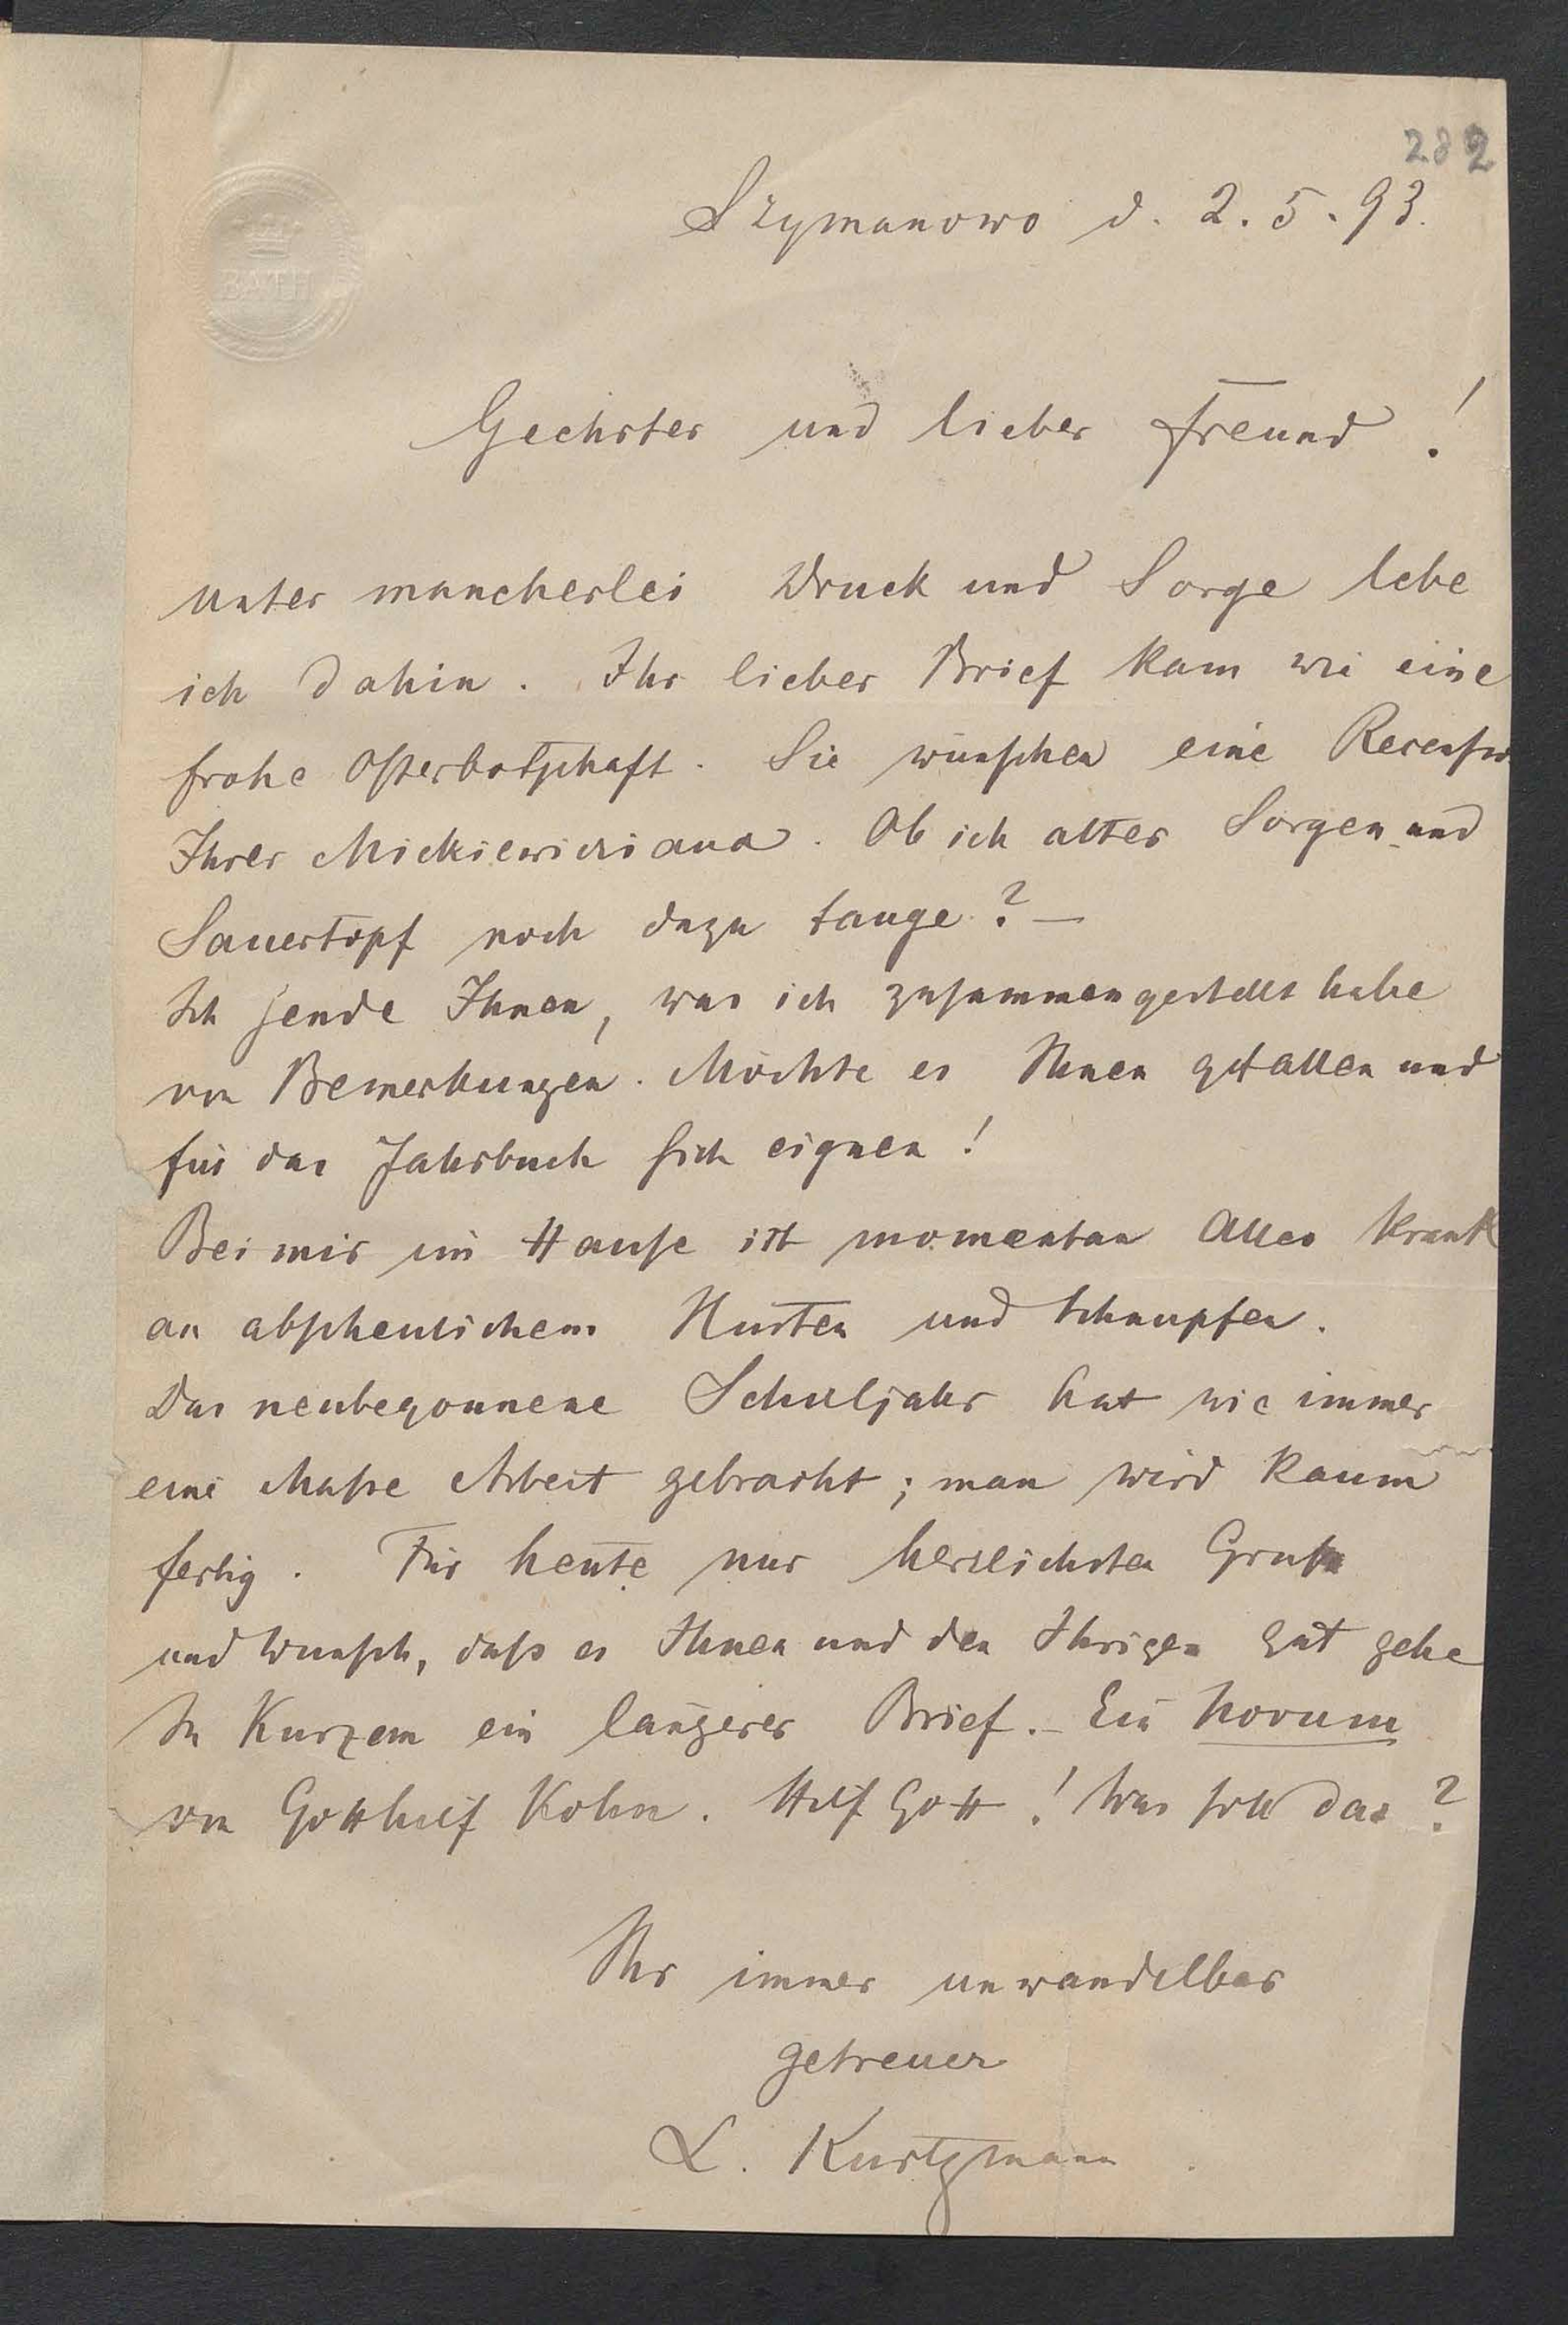 282
Szymanowo d. 2. 5. 93.
BATH
Geehrter und lieber Freund!
unter mancherlei Druck und Sorge lebe
ich dahin. Ihr lieber Brief kam wie eine
frohe Osterbotschaft. Sie wünschen eine Recension
Ihrer Mickiewicziana. Ob ich alter Sorgen- und
Sauertopf noch dazu tauge? —
Ich sende Ihnen, was ich zusammengestellt habe
von Bemerkungen. Möchte es Ihnen gefallen und
für das Jahrbuch sich eignen!
Bei mir im Hause ist momentan Alles krank
an abscheulichem Husten und Schnupfen.
Das neubegonnene Schuljahr hat wie immer
eine Masse Arbeit gebracht; man wird kaum
fertig. Für heute nur herzlichsten Gruß
und Wunsch, daß es Ihnen und den Ihrigen gut gehe
In Kurzem ein längerer Brief. – Ein Novum
von Gotthilf Kohn. Hilf Gott! Was soll das?
Ihr immer unwandelbar
getreuer
L. Kurtzmann